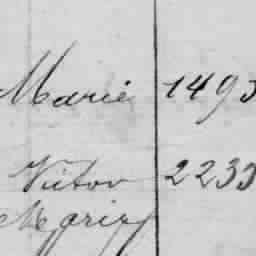 Marie 1493
Victor 2233